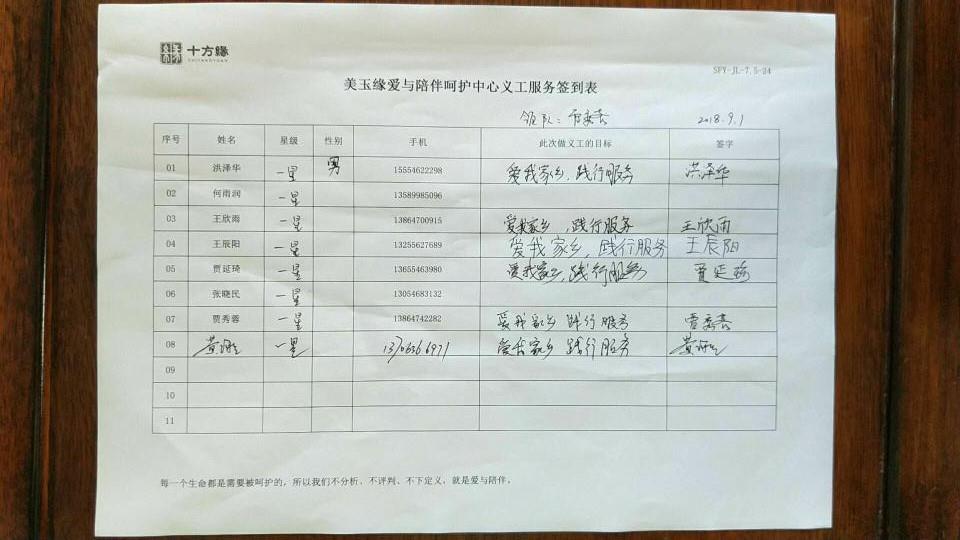 十方缘
SHIFANGYUAN
SFY-JL-7.5-24
美玉缘爱与陪伴呵护中心义工服务签到表
领队：贾秀蓉 2018.9.1
序号 姓名 星级 性别 手机 此次做义工的目标 签字
01 洪泽华 一星 男 15554622298 爱我家乡，践行服务 洪泽华
02 何雨润 一星 13589985096
03 王欣雨 一星 13864700915 爱我家乡，践行服务 王欣雨
04 王辰阳 一星 13255627689 爱我家乡，践行服务 王辰阳
05 贾延琦 一星 13655463980 爱我家乡，践行服务 贾延琦
06 张晓民 一星 13054683132
07 贾秀蓉 一星 13864742282 爱我家乡 践行服务 贾秀蓉
08 黄 一星 13706366971 爱我家乡 践行服务 黄
09
10
11
每一个生命都是需要被呵护的，所以我们不分析、不评判、不下定义，就是爱与陪伴。